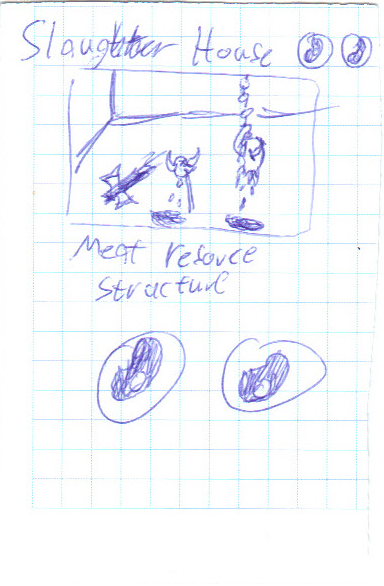 Slaughter House
Meat resource
structure